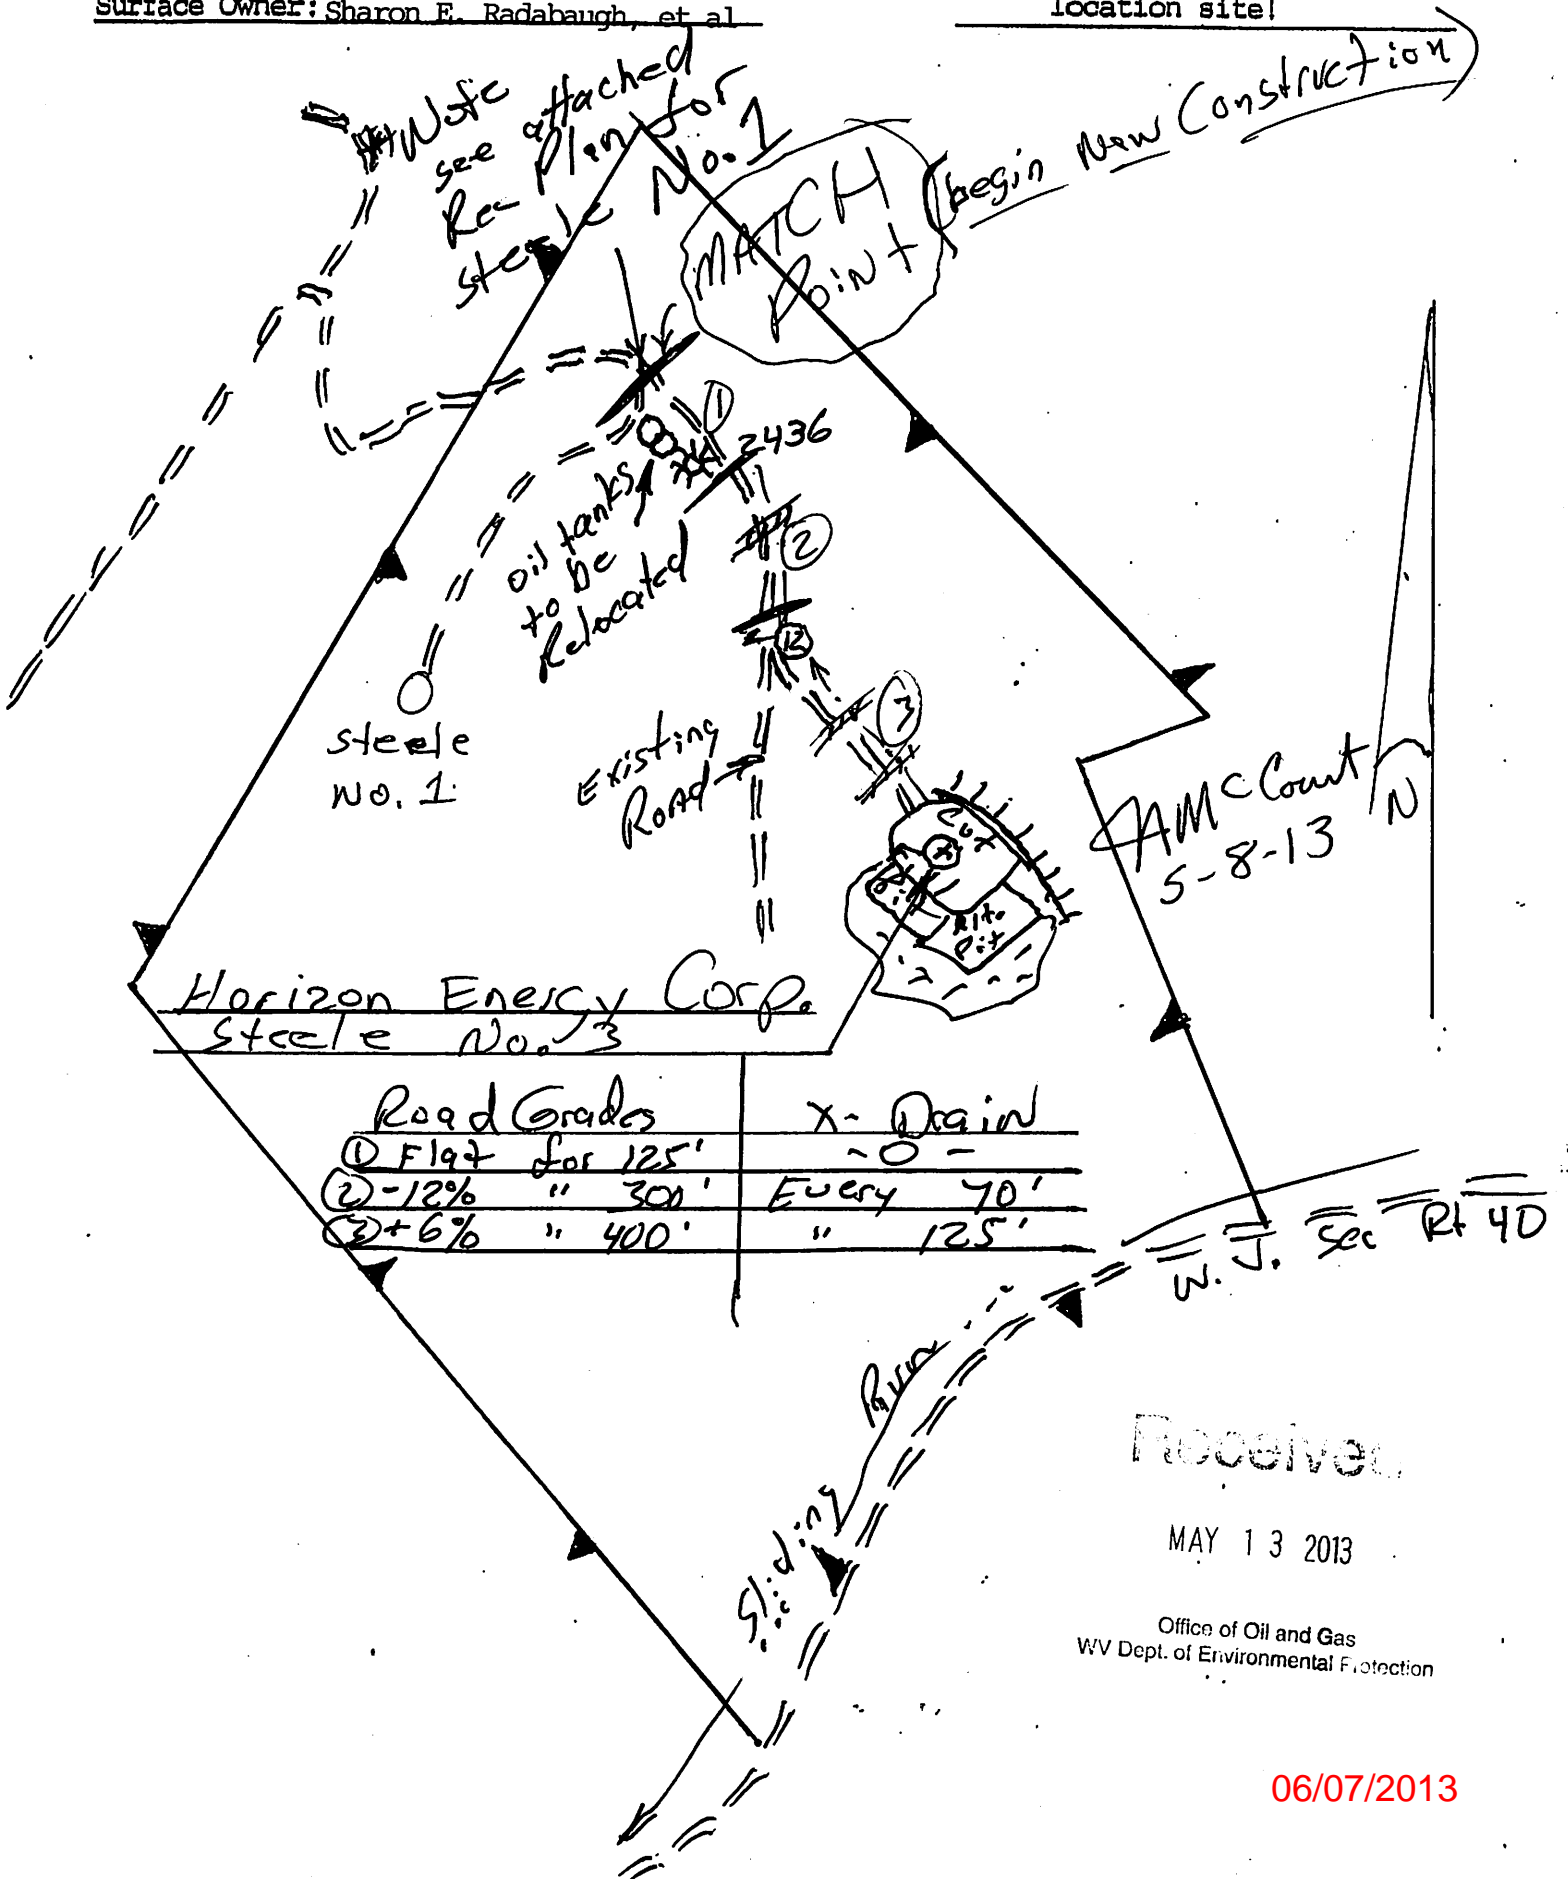 Surface Owner: Sharon E. Radabaugh, et al
location site!
** Note
see attached
Rec Plan for
Steele No. 1
MATCH
Point
(begin New Construction)
1
2436
oil tanks
to be
Relocated
2
12
3
Steele
No. 1
Existing
Road
Cut
Alt.
Pit
JAMcCourt
5-8-13
N
Horizon Energy Corp.
Steele No. 3
Road Grades X-Drain
① Flat for 125' -0-
② -12% " 300' Every 70'
③ +6% " 400' " 125'
W. J. Sec Rt 40
Sliding Run
Received
MAY 13 2013
Office of Oil and Gas
WV Dept. of Environmental Protection
06/07/2013